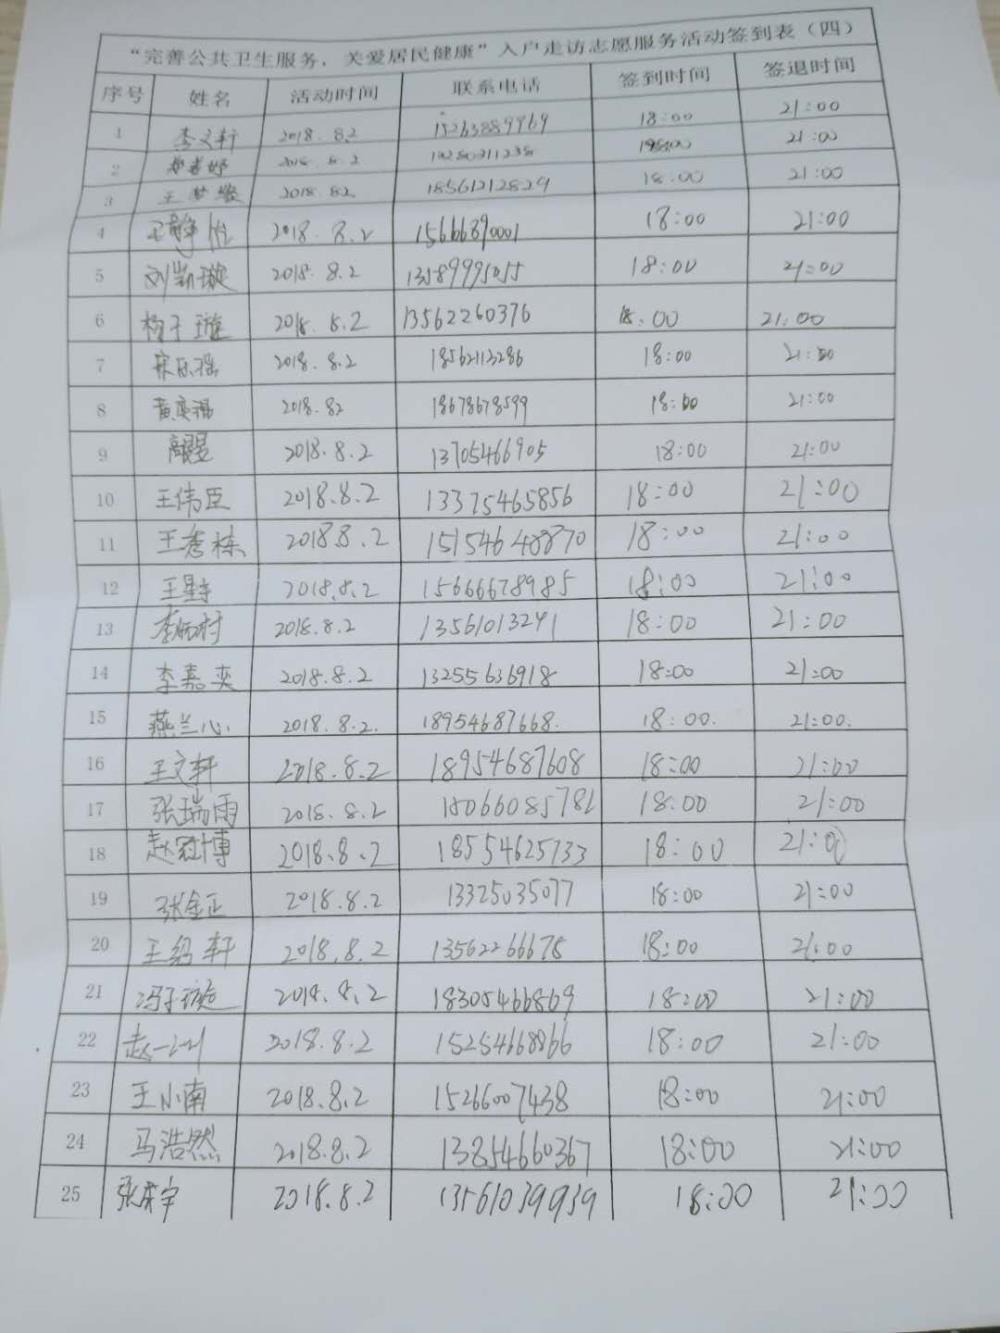 “完善公共卫生服务，关爱居民健康”入户走访志愿服务活动签到表（四）
序号 姓名 活动时间 联系电话 签到时间 签退时间
1 李文轩 2018.8.2 15263889969 18:00 21:00
2 2018.8.2 18:00 21:00
3 2018.8.2 18561212829 18:00 21:00
4 2018.8.2 15666890001 18:00 21:00
5 刘凯璇 2018.8.2 13589995055 18:00 21:00
6 杨子璇 2018.8.2 13562260376 18:00 21:00
7 2018.8.2 18562113286 18:00 21:00
8 2018.8.2 18678678599 18:00 21:00
9 2018.8.2 13705466905 18:00 21:00
10 王伟臣 2018.8.2 13375465856 18:00 21:00
11 王秀栋 2018.8.2 15154648870 18:00 21:00
12 2018.8.2 15666678985 18:00 21:00
13 李炳村 2018.8.2 13561013241 18:00 21:00
14 李嘉奕 2018.8.2 13255636918 18:00 21:00
15 燕兰心 2018.8.2. 18954687668. 18:00. 21:00.
16 王文轩 2018.8.2 18954687608 18:00 21:00
17 张瑞雨 2018.8.2 18066085782 18:00 21:00
18 赵冠博 2018.8.2 18554625733 18:00 21:00
19 张金正 2018.8.2 13325035077 18:00 21:00
20 王绍轩 2018.8.2 13562266678 18:00 21:00
21 冯子璇 2018.8.2 18305466869 18:00 21:00
22 2018.8.2 15254668866 18:00 21:00
23 王小南 2018.8.2 15266007438 18:00 21:00
24 马浩然 2018.8.2 13854660367 18:00 21:00
25 2018.8.2 13561039939 18:00 21:00